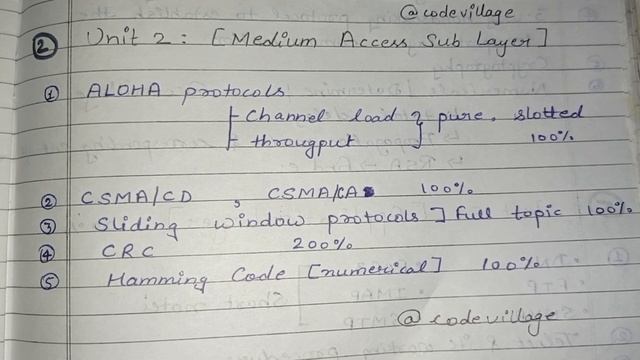 @codevillage
② Unit 2 : [Medium Access Sub Layer]
① ALOHA protocols
Channel load } pure, slotted
througput 100%
② CSMA/CD , CSMA/CA 100%
③ Sliding window protocols ] Full topic 100%
④ CRC 200%
⑤ Hamming Code [numerical] 100%
@codevillage